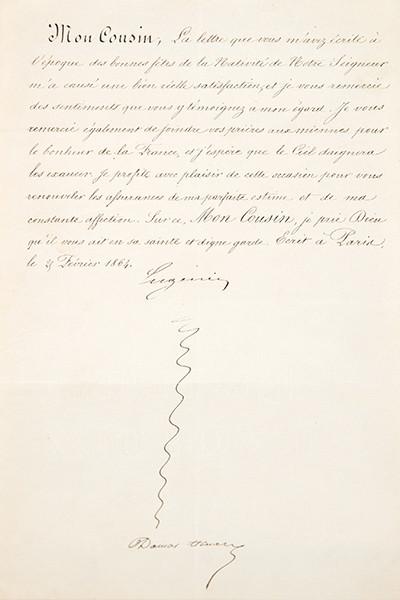 Mon Cousin, La lettre que vous m'avez écrite à
l'époque des bonnes fêtes de la Nativité de Notre Seigneur
m'a causé une bien réelle satisfaction, et je vous remercie
des sentiments que vous y témoignez à mon égard. Je vous
remercie également de joindre vos prières aux miennes pour
le bonheur de la France, et j'espère que le Ciel daignera
les exaucer. Je profite avec plaisir de cette occasion pour vous
renouveler les assurances de ma parfaite estime et de ma
constante affection. Sur ce, Mon Cousin, je prie Dieu
qu'il vous ait en sa sainte et digne garde. Ecrit à Paris,
le Février 1864.
Eugénie
Damas